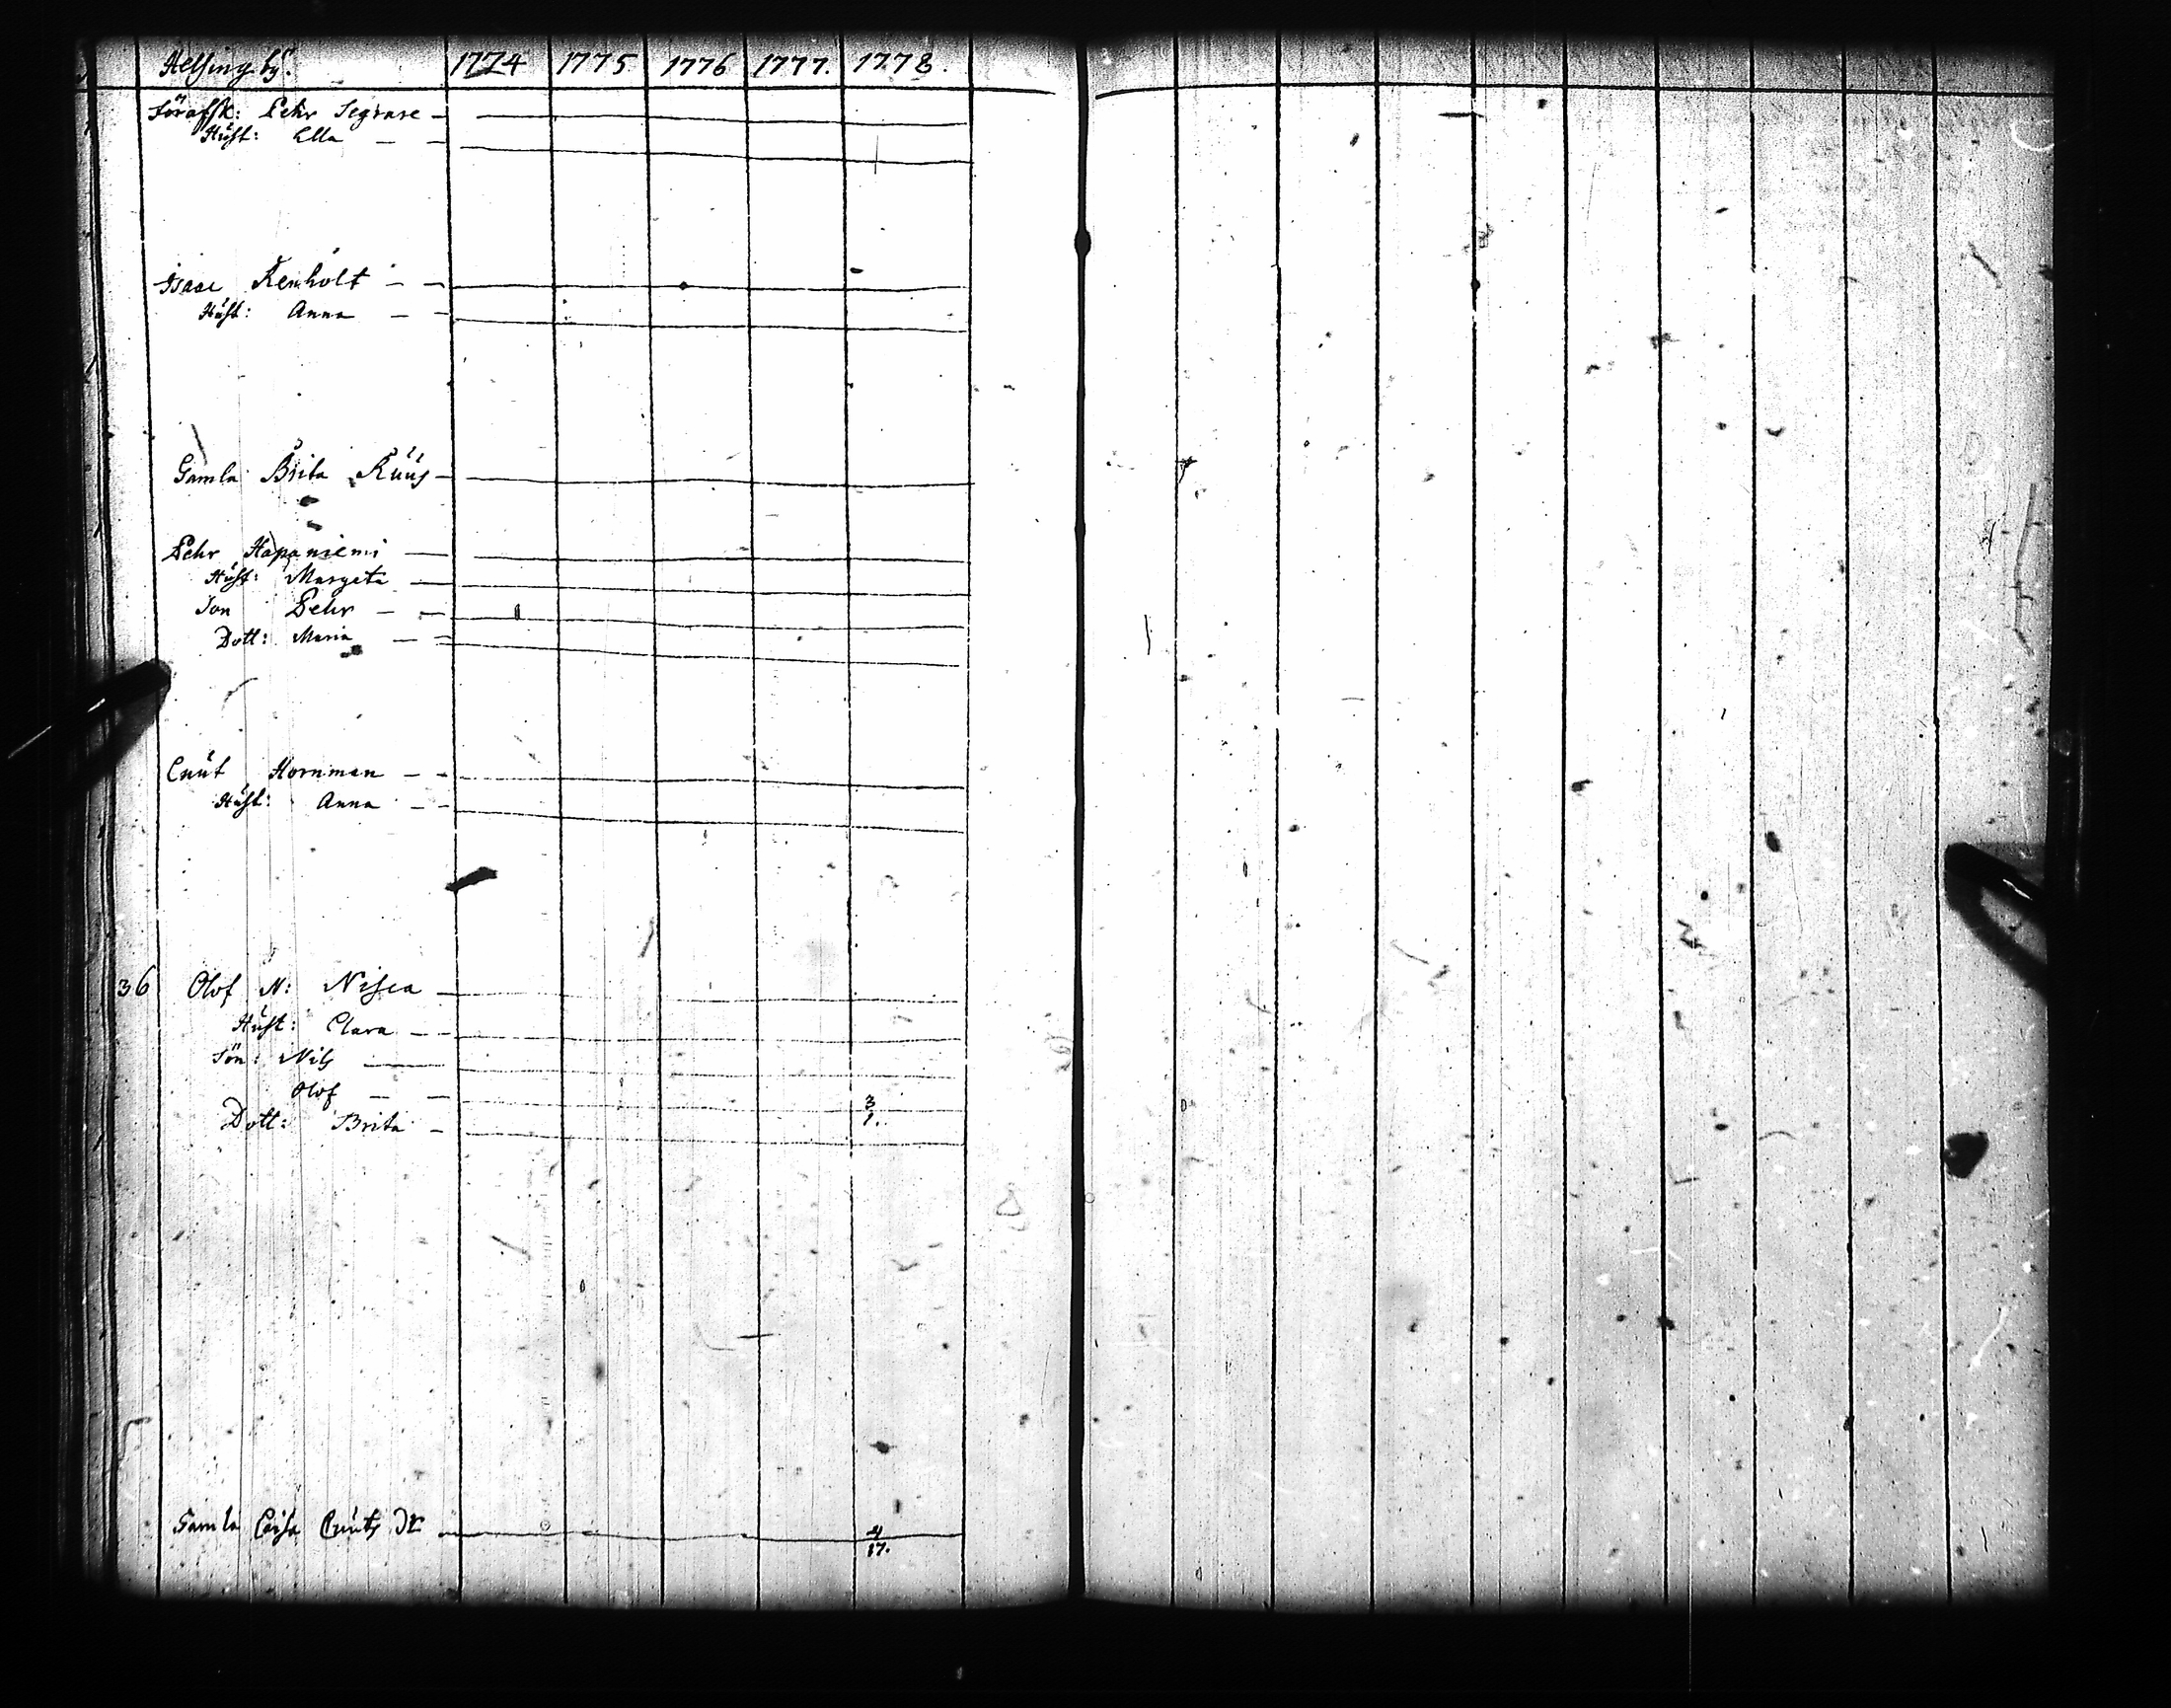 Helsing by. 1774 1775 1776 1777. 1778.
Pehr Segrare
Hust: Ella
Isaac Renholt
Hust: Anna
Gamla Brita Ruus
Pehr Hapaniemi
Hust: Margeta
Son Pehr
Dott: Maria
Cnut Hornman
Hust: Anna
36 Olof N: Nisca
Hust: Clara
Sön: Nils
Olof 3
Dott: Brita 1.
Gamla Caisa Cnuts Dr 4
17.